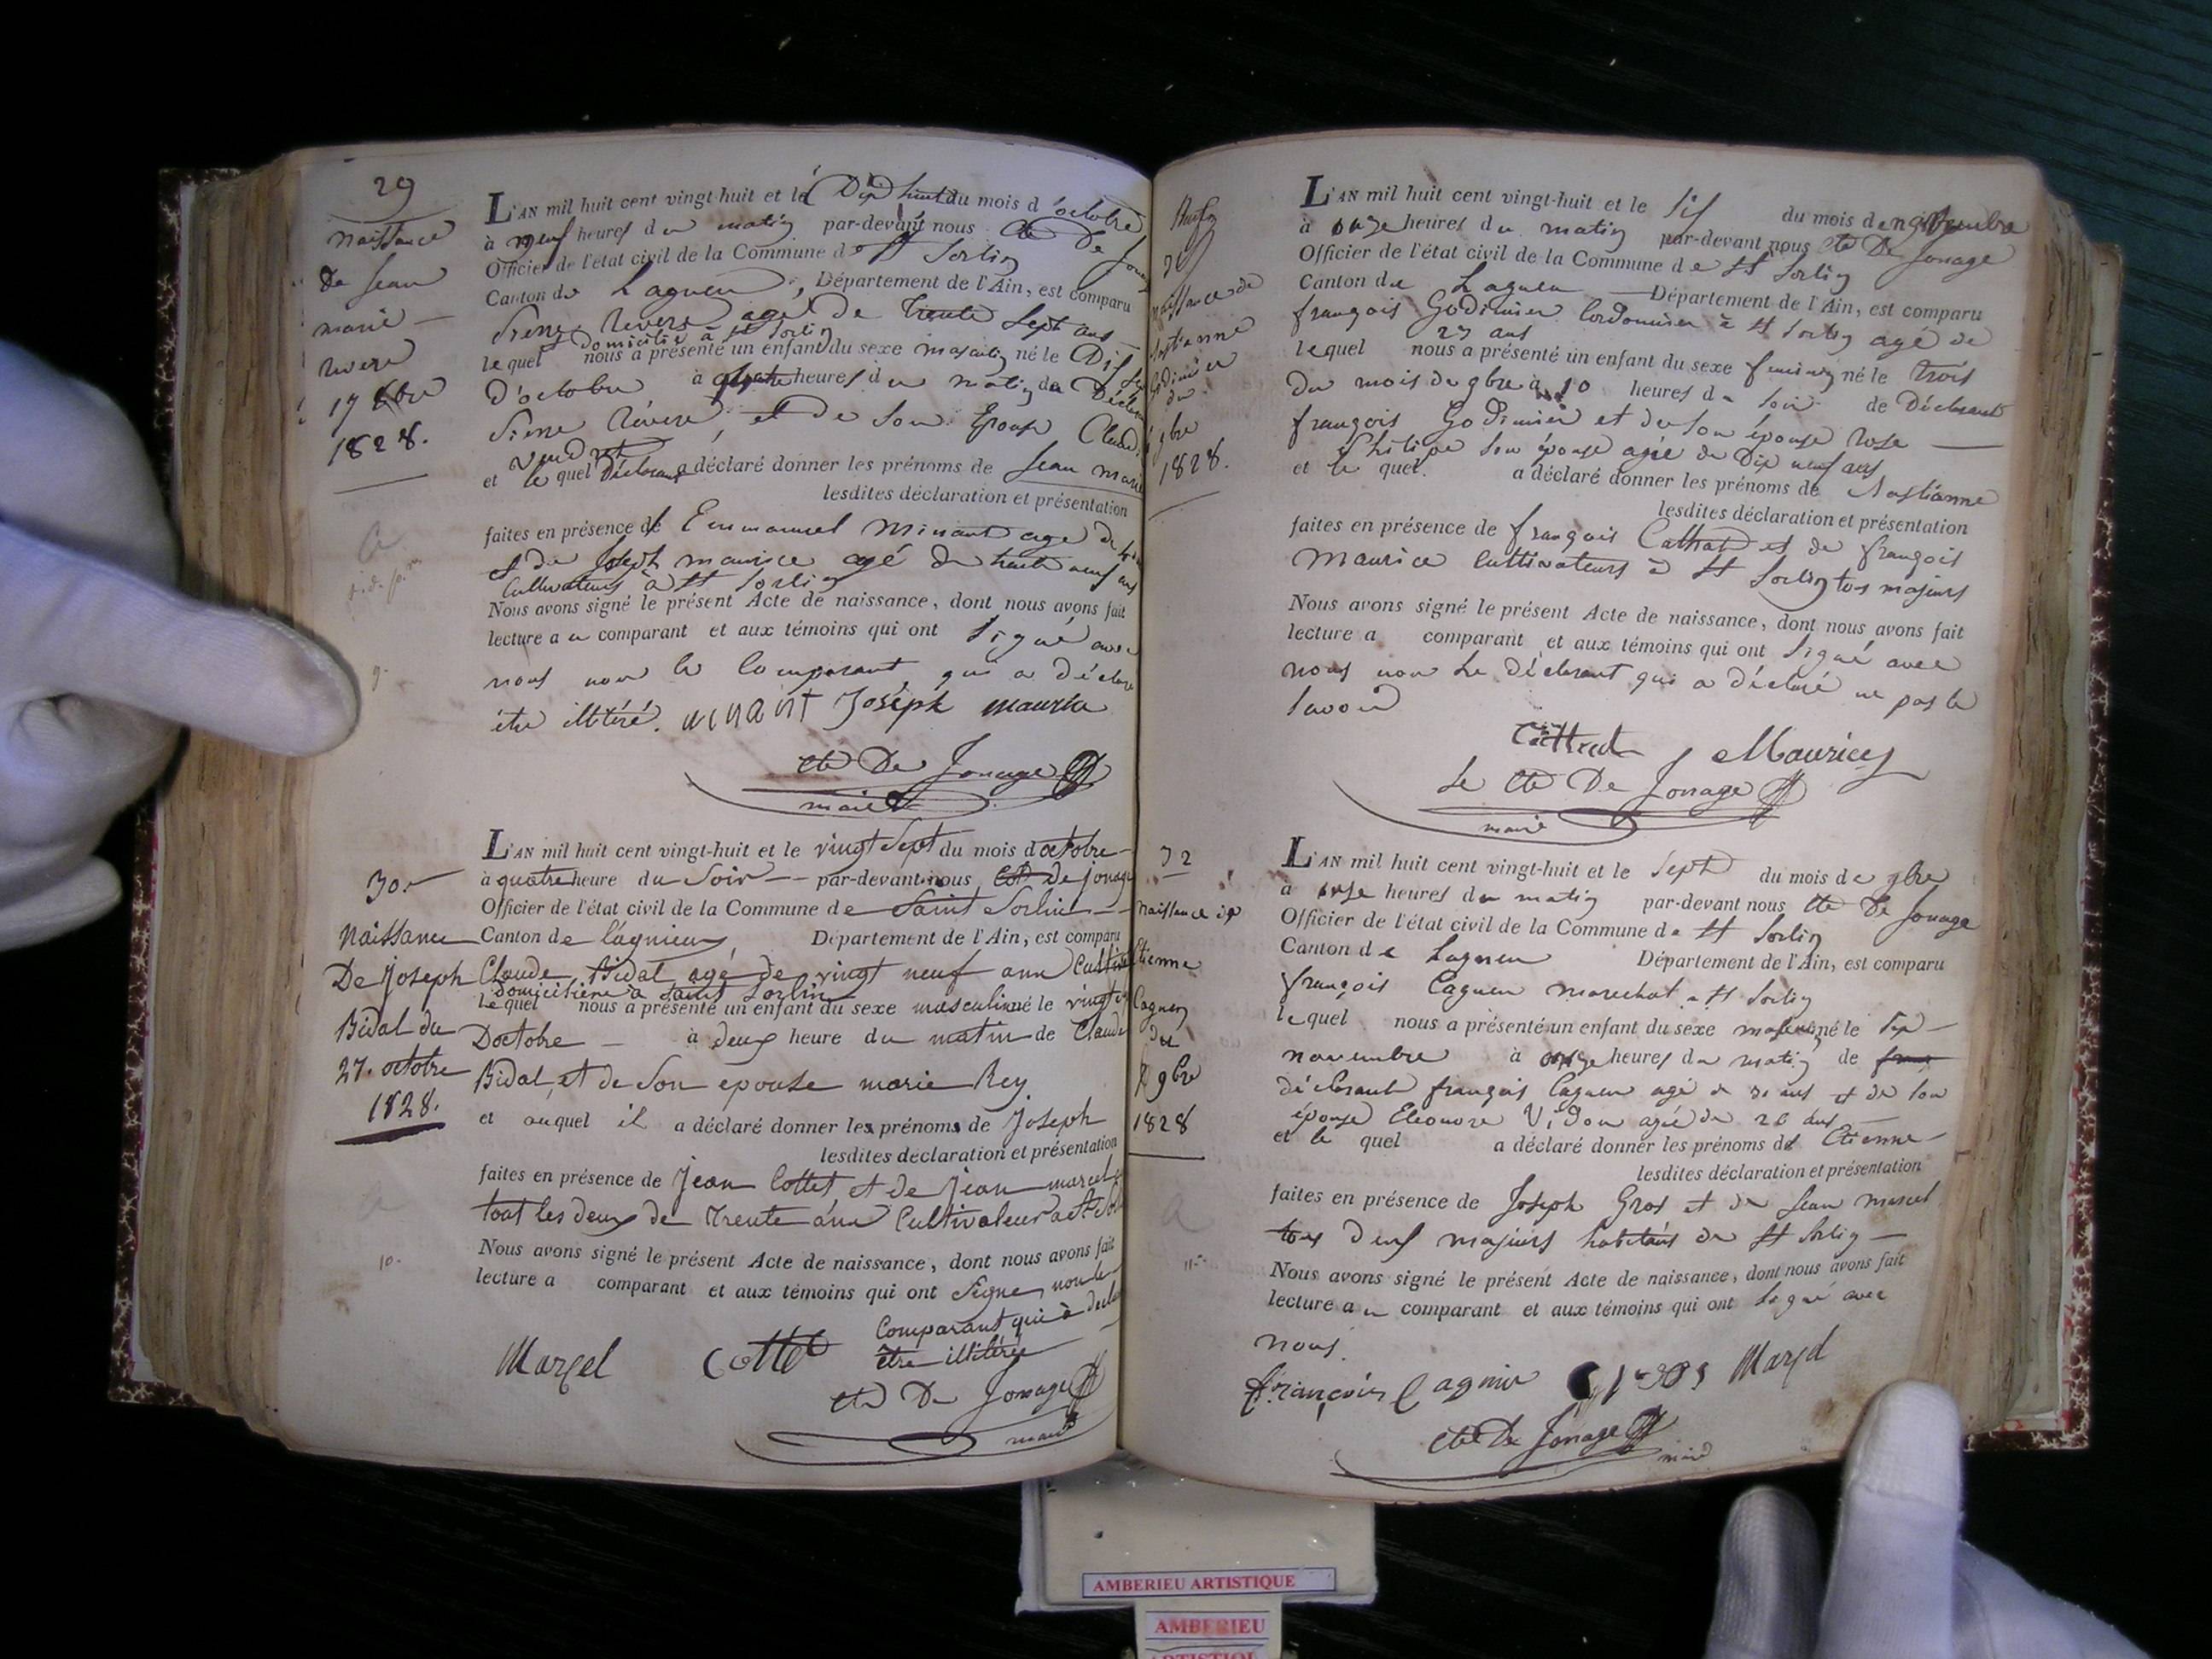 29
naissance
de Jean
marie
rivere
1828.
L'AN mil huit cent vingt-huit et le Dix huit du mois d'octobre
à neuf heures du matin par-devant nous cte De Jonage
Officier de l'état civil de la Commune de St Sorlin
Canton de Lagneu, Département de l'Ain, est comparu
Pierre Rivere agé de Trente Sept ans
domicilié à St Sorlin
lequel nous a présenté un enfant du sexe masculin né le Dix
d'octobre à quatre heures du matin du
Pierre Rivere, et de Son Epouse
et le quel Déclarant a déclaré donner les prénoms de Jean marie
lesdites déclaration et présentation
faites en présence de Emmanuel Minant agé de
et de Joseph maurice agé de trente neuf ans
Cultivateurs à St Sorlin
Nous avons signé le présent Acte de naissance, dont nous avons fait
lecture au comparant et aux témoins qui ont Signé avec
nous non le Comparant, qui a déclaré
être illitéré. minant Joseph maurice
cte De Jonage
maire
30
Naissance
De joseph
Bidal du
27. octobre
1828.
L'AN mil huit cent vingt-huit et le vingt Sept du mois d'octobre
à quatre heure du Soir par-devant nous cte De jonage
Officier de l'état civil de la Commune de Saint Sorlin
Canton de lagnieux, Département de l'Ain, est comparu
Claude Bidal agé de vingt neuf ann
domicilière à Saint Sorlin
lequel nous a présenté un enfant du sexe masculin né le
Doctobre à deux heure du matin de Claude
Bidal, et de Son epouse marie Rey.
et auquel il a déclaré donner les prénoms de Joseph
lesdites déclaration et présentation
faites en présence de Jean Cottet et de jean marcel
tout les deux de trente ann Cultivateur
Nous avons signé le présent Acte de naissance, dont nous avons fait
lecture a comparant et aux témoins qui ont Signe, non le
Comparant qui à
être illitérée
Marcel Cottet
cte De Jonage
maire
naissance de
Godinier
du
9bre
1828.
L'AN mil huit cent vingt-huit et le Six du mois de novembre
à onze heures du matin par-devant nous cte De Jonage
Officier de l'état civil de la Commune de St Sorlin
Canton de Lagneu Département de l'Ain, est comparu
françois Godinier Cordonnier à St Sorlin agé de
27 ans
lequel nous a présenté un enfant du sexe feminin né le trois
du mois de 9bre à 10 heures du soir de Déclarant
françois Godinier et de son épouse rose
Philipe son épouse agée de Dix neuf ans
et le quel. a déclaré donner les prénoms de
lesdites déclaration et présentation
faites en présence de françois Cathrat et de françois
Maurice Cultivateurs à St Sorlin tos majeurs
Nous avons signé le présent Acte de naissance, dont nous avons fait
lecture a comparant et aux témoins qui ont Signé avec
nous non le Déclarant qui a déclaré ne pas le
savoir
Cathrat Maurice
Le cte De Jonage
maire
32
naissance de
Etienne
Cagneu
du
9bre
1828
L'AN mil huit cent vingt-huit et le Sept du mois de 9bre
à onze heures du matin par-devant nous cte De Jonage
Officier de l'état civil de la Commune de St Sorlin
Canton de Lagneu Département de l'Ain, est comparu
françois Cagneu marechal a St Sorlin
lequel nous a présenté un enfant du sexe masculin né le
novembre à onze heures du matin de
déclarant françois Cagneu agé de 31 ans et de son
épouse Eleonore Vidon agée de 26 ans
et le quel a déclaré donner les prénoms de Etienne
lesdites déclaration et présentation
faites en présence de Joseph Gros et de Jean marcel
tos deux majeurs habitans de St Sorlin
Nous avons signé le présent Acte de naissance, dont nous avons fait
lecture au comparant et aux témoins qui ont Signé avec
nous.
françois Cagniu gros Marcel
cte De Jonage
maire
AMBERIEU ARTISTIQUE
AMBERIEU
ARTISTIQUE